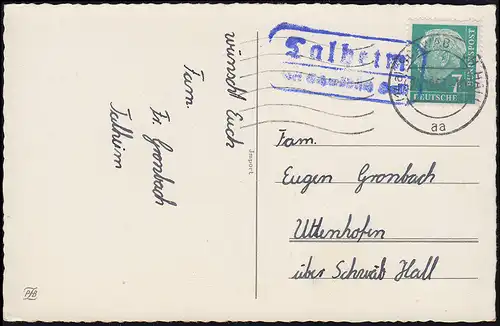 wünscht Euch
Fam.
Fr. Gronbach
Talheim
Import
PfB
Talheim
über Schwäbisch Hall
SCHWÄB HALL
aa
7
DEUTSCHE
BUNDESPOST
Fam.
Eugen Gronbach
Uttenhofen
über Schwäb Hall